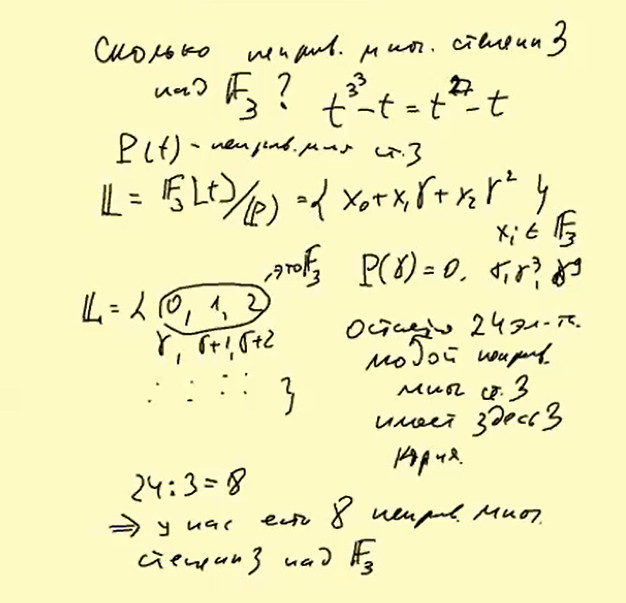 Сколько неприв. мног. степени 3
над 𝔽₃? t^{3^3} - t = t^{27} - t
P(t) - неприв. мног ст. 3
𝕃 = 𝔽₃[t]/(P) = { x₀ + x₁γ + x₂γ² }
x_i ∈ 𝔽₃
, это 𝔽₃ P(γ) = 0. γ, γ³, γ⁹
𝕃 = { 0, 1, 2
γ, γ+1, γ+2
. . . .
. . . . }
Осталось 24 эл-та.
любой неприв.
мног ст. 3
имеет здесь 3
корня.
24 : 3 = 8
⇒ у нас есть 8 неприв. мног.
степени 3 над 𝔽₃